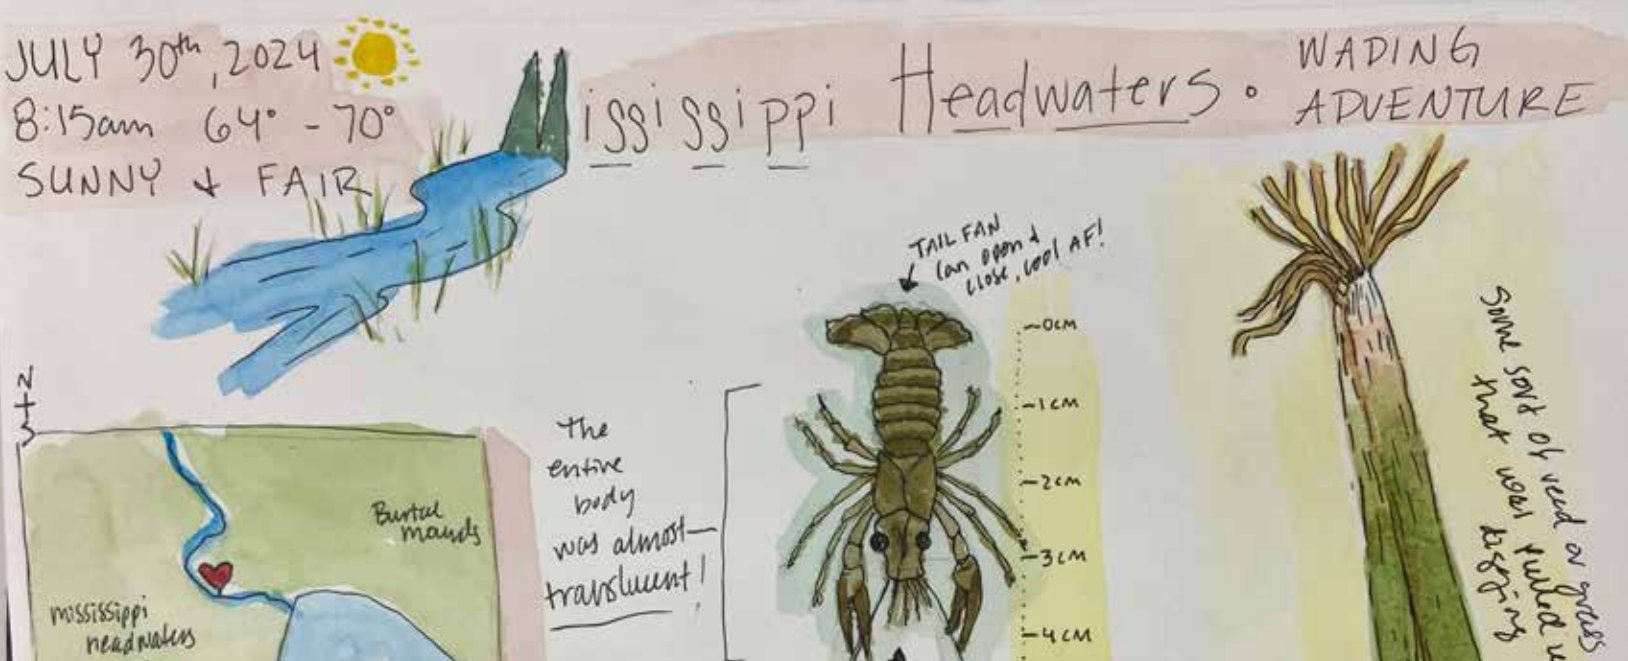 JULY 30th, 2024
8:15am 64° - 70°
SUNNY & FAIR
Mississippi Headwaters • WADING
ADVENTURE
TAIL FAN
can open &
close, cool AF!
0CM
1CM
2CM
3CM
4CM
N
The
entire
body
was almost
translucent!
Burial
mounds
mississippi
headwaters
Some sort of reed or grass
that was pulled
digging